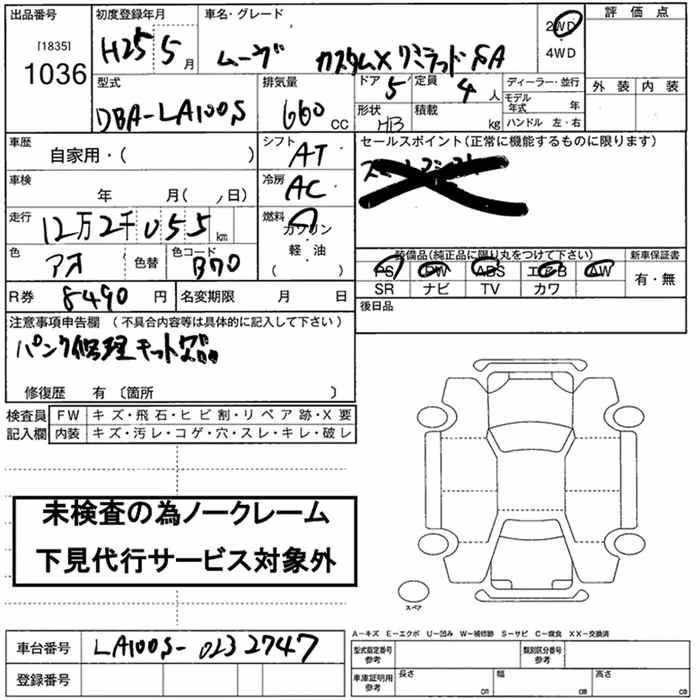 出品番号 初度登録年月 車名・グレード 評価点
[1835] 1036 H25 5月 ムーヴ カスタムX リミテッド SA 2WD 4WD
外装 内装
型式 排気量 ドア 5 定員 4人 ディーラー・並行
DBA-LA100S 660 CC 形状 HB 積載 kg モデル年式 年
ハンドル 左・右
車歴 自家用・( ) シフト AT セールスポイント(正常に機能するものに限ります)
車検 年 月( 、日) 冷房 AC
走行 12万2千055km 燃料 ガソリン 軽・油 ( )
色 アオ 色替 色コード B70
装備品(純正品に限り丸をつけて下さい) 新車保証書
PS PW ABS エアB AW 有・無
SR ナビ TV カワ
R券 8490円 名変期限 月 日 後日品
注意事項申告欄 (不具合内容等は具体的に記入して下さい)
パンク修理キット
修復歴 有 〔箇所 〕
検査員 FW キズ・飛石・ヒビ割・リペア跡・X要
記入欄 内装 キズ・汚レ・コゲ・穴・スレ・キレ・破レ
未検査の為ノークレーム
下見代行サービス対象外
スペア
A-キズ E-エクボ U-凹み W-補修跡 S-サビ C-腐食 XX-交換済
車台番号 LA100S-0232747
型式指定番号 参考 類別区分番号 参考
登録番号 車庫証明用 参考 長さ cm 幅 cm 高さ cm